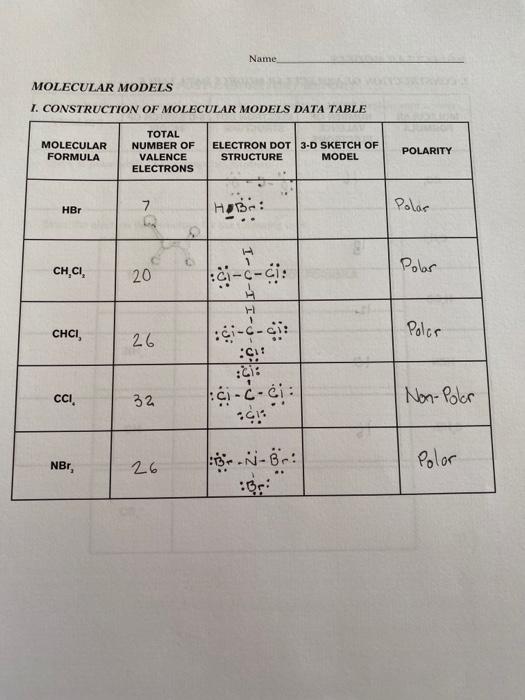 Name
MOLECULAR MODELS
I. CONSTRUCTION OF MOLECULAR MODELS DATA TABLE
MOLECULAR FORMULA
TOTAL NUMBER OF VALENCE ELECTRONS
ELECTRON DOT STRUCTURE
3-D SKETCH OF MODEL
POLARITY
HBr
7
H Br:
Polar
CH₂Cl₂
20
H
:Cl-C-Cl:
H
Polar
CHCl₃
26
H
:Cl-C-Cl:
:Cl:
Polar
CCl₄
32
:Cl:
:Cl-C-Cl:
:Cl:
Non-Polar
NBr₃
26
:Br-N-Br:
:Br:
Polar